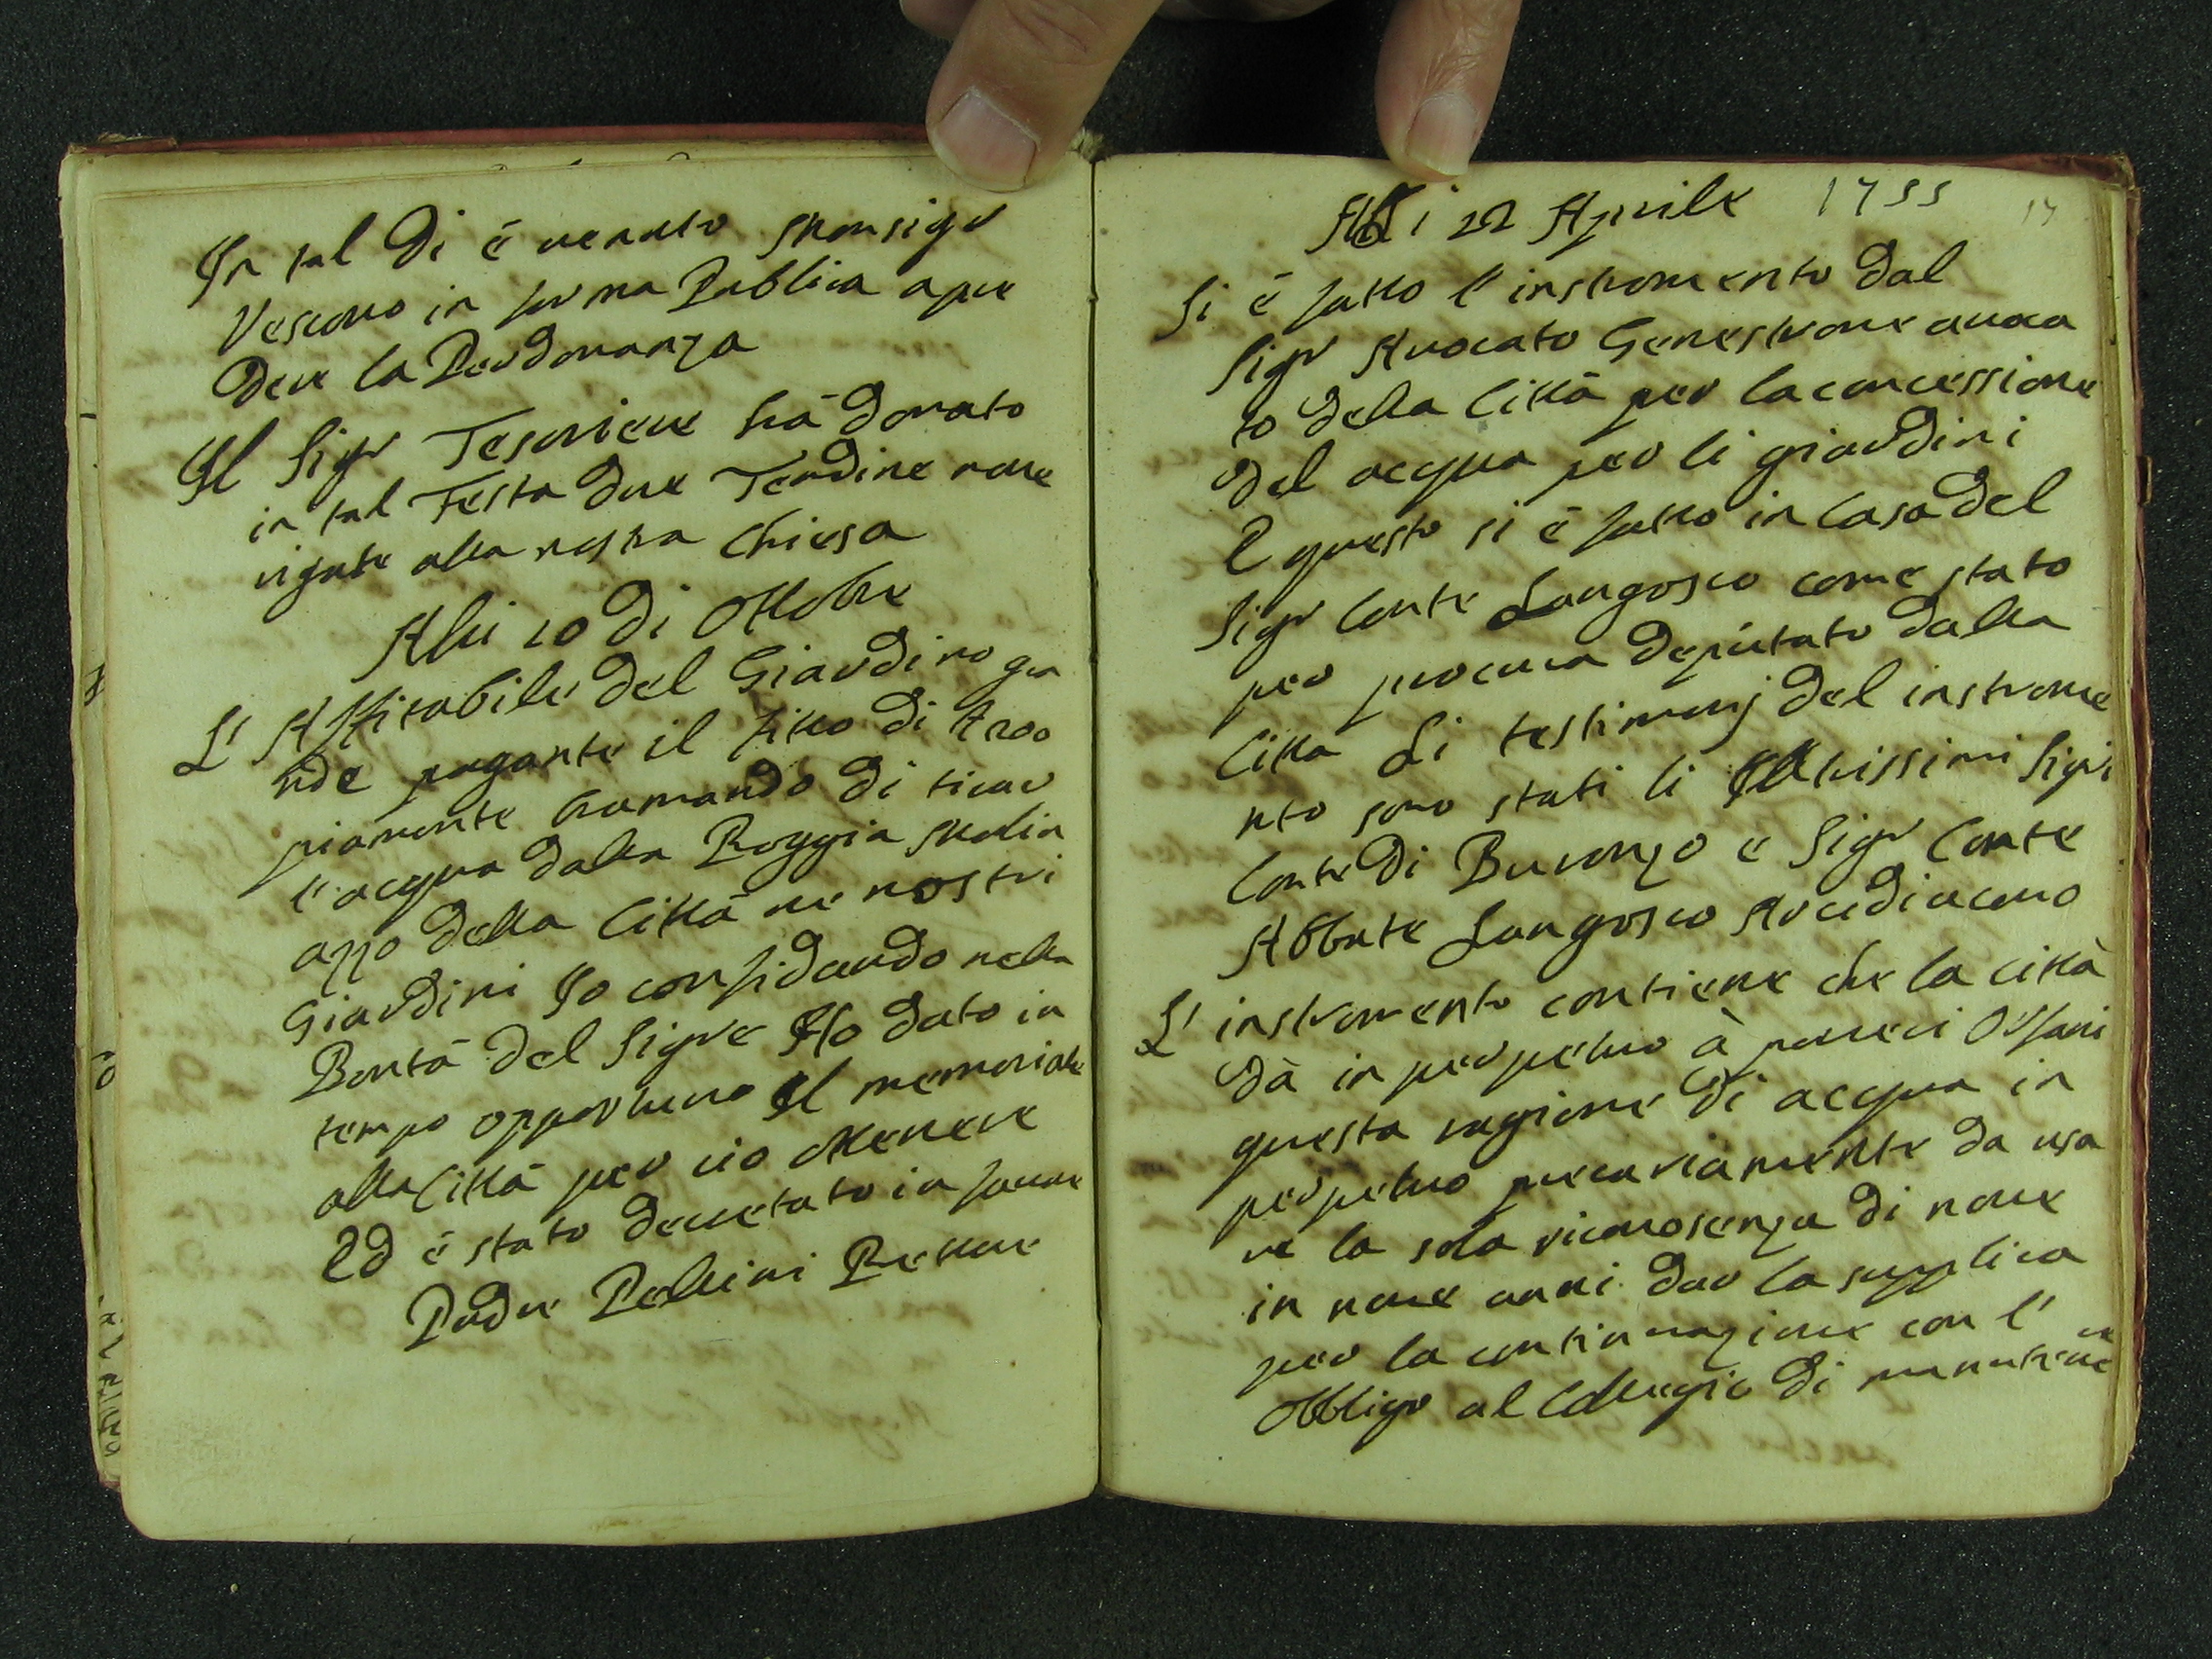 In tal di è venuto Monsigr
Vescovo in forma Publica apre
dere la Perdonanza
Il Sigr Tesoriere hà donato
in tal Festa due Tendine nove
rigate alla nostra Chiesa
Alli 10 di Ottobre
L' Affitabile del Giardino gra
nde pagante il fitto di
piamente bramando di tirar
l'acqua dalla Roggia Molin
azzo della Città ne nostri
Giardini Io confidando nella
Bontà del Sigre Ho dato in
tempo opportuno il memoriale
alla Città per ciò ottenere
Ed è stato decretato in favore
Padre Pellini Rettore
Alli 22 Aprile 1755
17
Si è fatto l'instromento dal
Sigr Avocato Genestrone avoca
to della Città per la concessione
del acqua per li giardini
E questo si è fatto in Casa del
Sigr Conte Langosco come stato
per procura depùtato dalla
Citta Li testimonj del instrome
nto sono stati li Illmissimi Sigri
Conte di Buronzo e Sigr Conte
Abbate Langosco Arcidiacono
L' instromento contiene che la città
dà in perpetuo à poveri Orfani
questa ragione di acqua in
perpetuo precariamente da usa
re la sola riconosenza di nove
in nove anni dar la supplica
per la continuazione con l'
Obbligo al Collegio di mantene
re